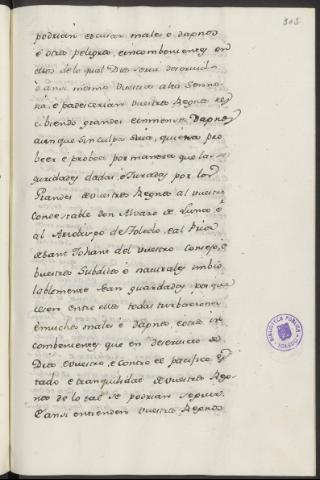 303
podrian escusar males é dapnos
é otros peligros e incombenientes en
ellos de lo qual Dios será deservido
é ansi mismo vuestra alta Senno-
ria é padescerian vuestros Regnos re
cibiendo grandes e inmensos Dapnos
aunque sin culpa suia, quiera pro
beer é probea por manera que las
guridades dadas é Juradas por los
Grandes de vuestros Regnos al vuestro
Condestable don Alvaro de Luna é
al Arzobispo de Toledo, é al Prior
de Sant Johant del vuestro Consejo, é
buestros Subditos é naturales imbio
lablemente sean guardadas; por que
cesen entre ellos todas turbaciones
é muchos males é dapnos, é otros in
combenientes que en deservicio de
Dios, é vuestro, é contra el pacifico es
tado é tranquilidad de vuestros Reg-
nos de lo tal se podrian seguir.
E ansi entienden vuestros Regnos
BIBLIOTECA PUBLICA
TOLEDO